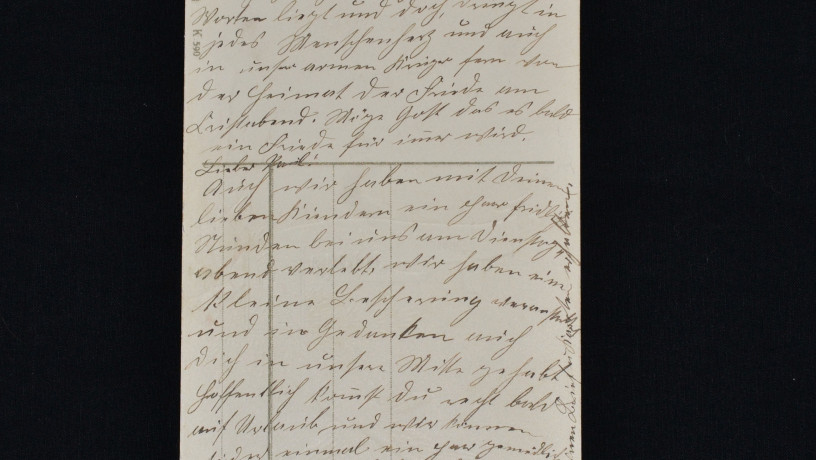 Worten liegt und doch, dringt in
jedes Menschenherz und auch
in unser armen Krieger fern von
der Heimat der Friede am
Cristabend. Möge Gott das es bald
ein Friede für immer wird.
Lieber
Auch wir haben mit Deinen
lieben Kindern ein paar
Stunden bei uns am Dienstag
abend verlebt, wir haben eine
kleine Bescherung
und in Gedanken auch
Dich in unsere Mitte gehabt
Hoffentlich kommst Du recht bald
auf Urlaub und wir können
einmal ein paar
K 500